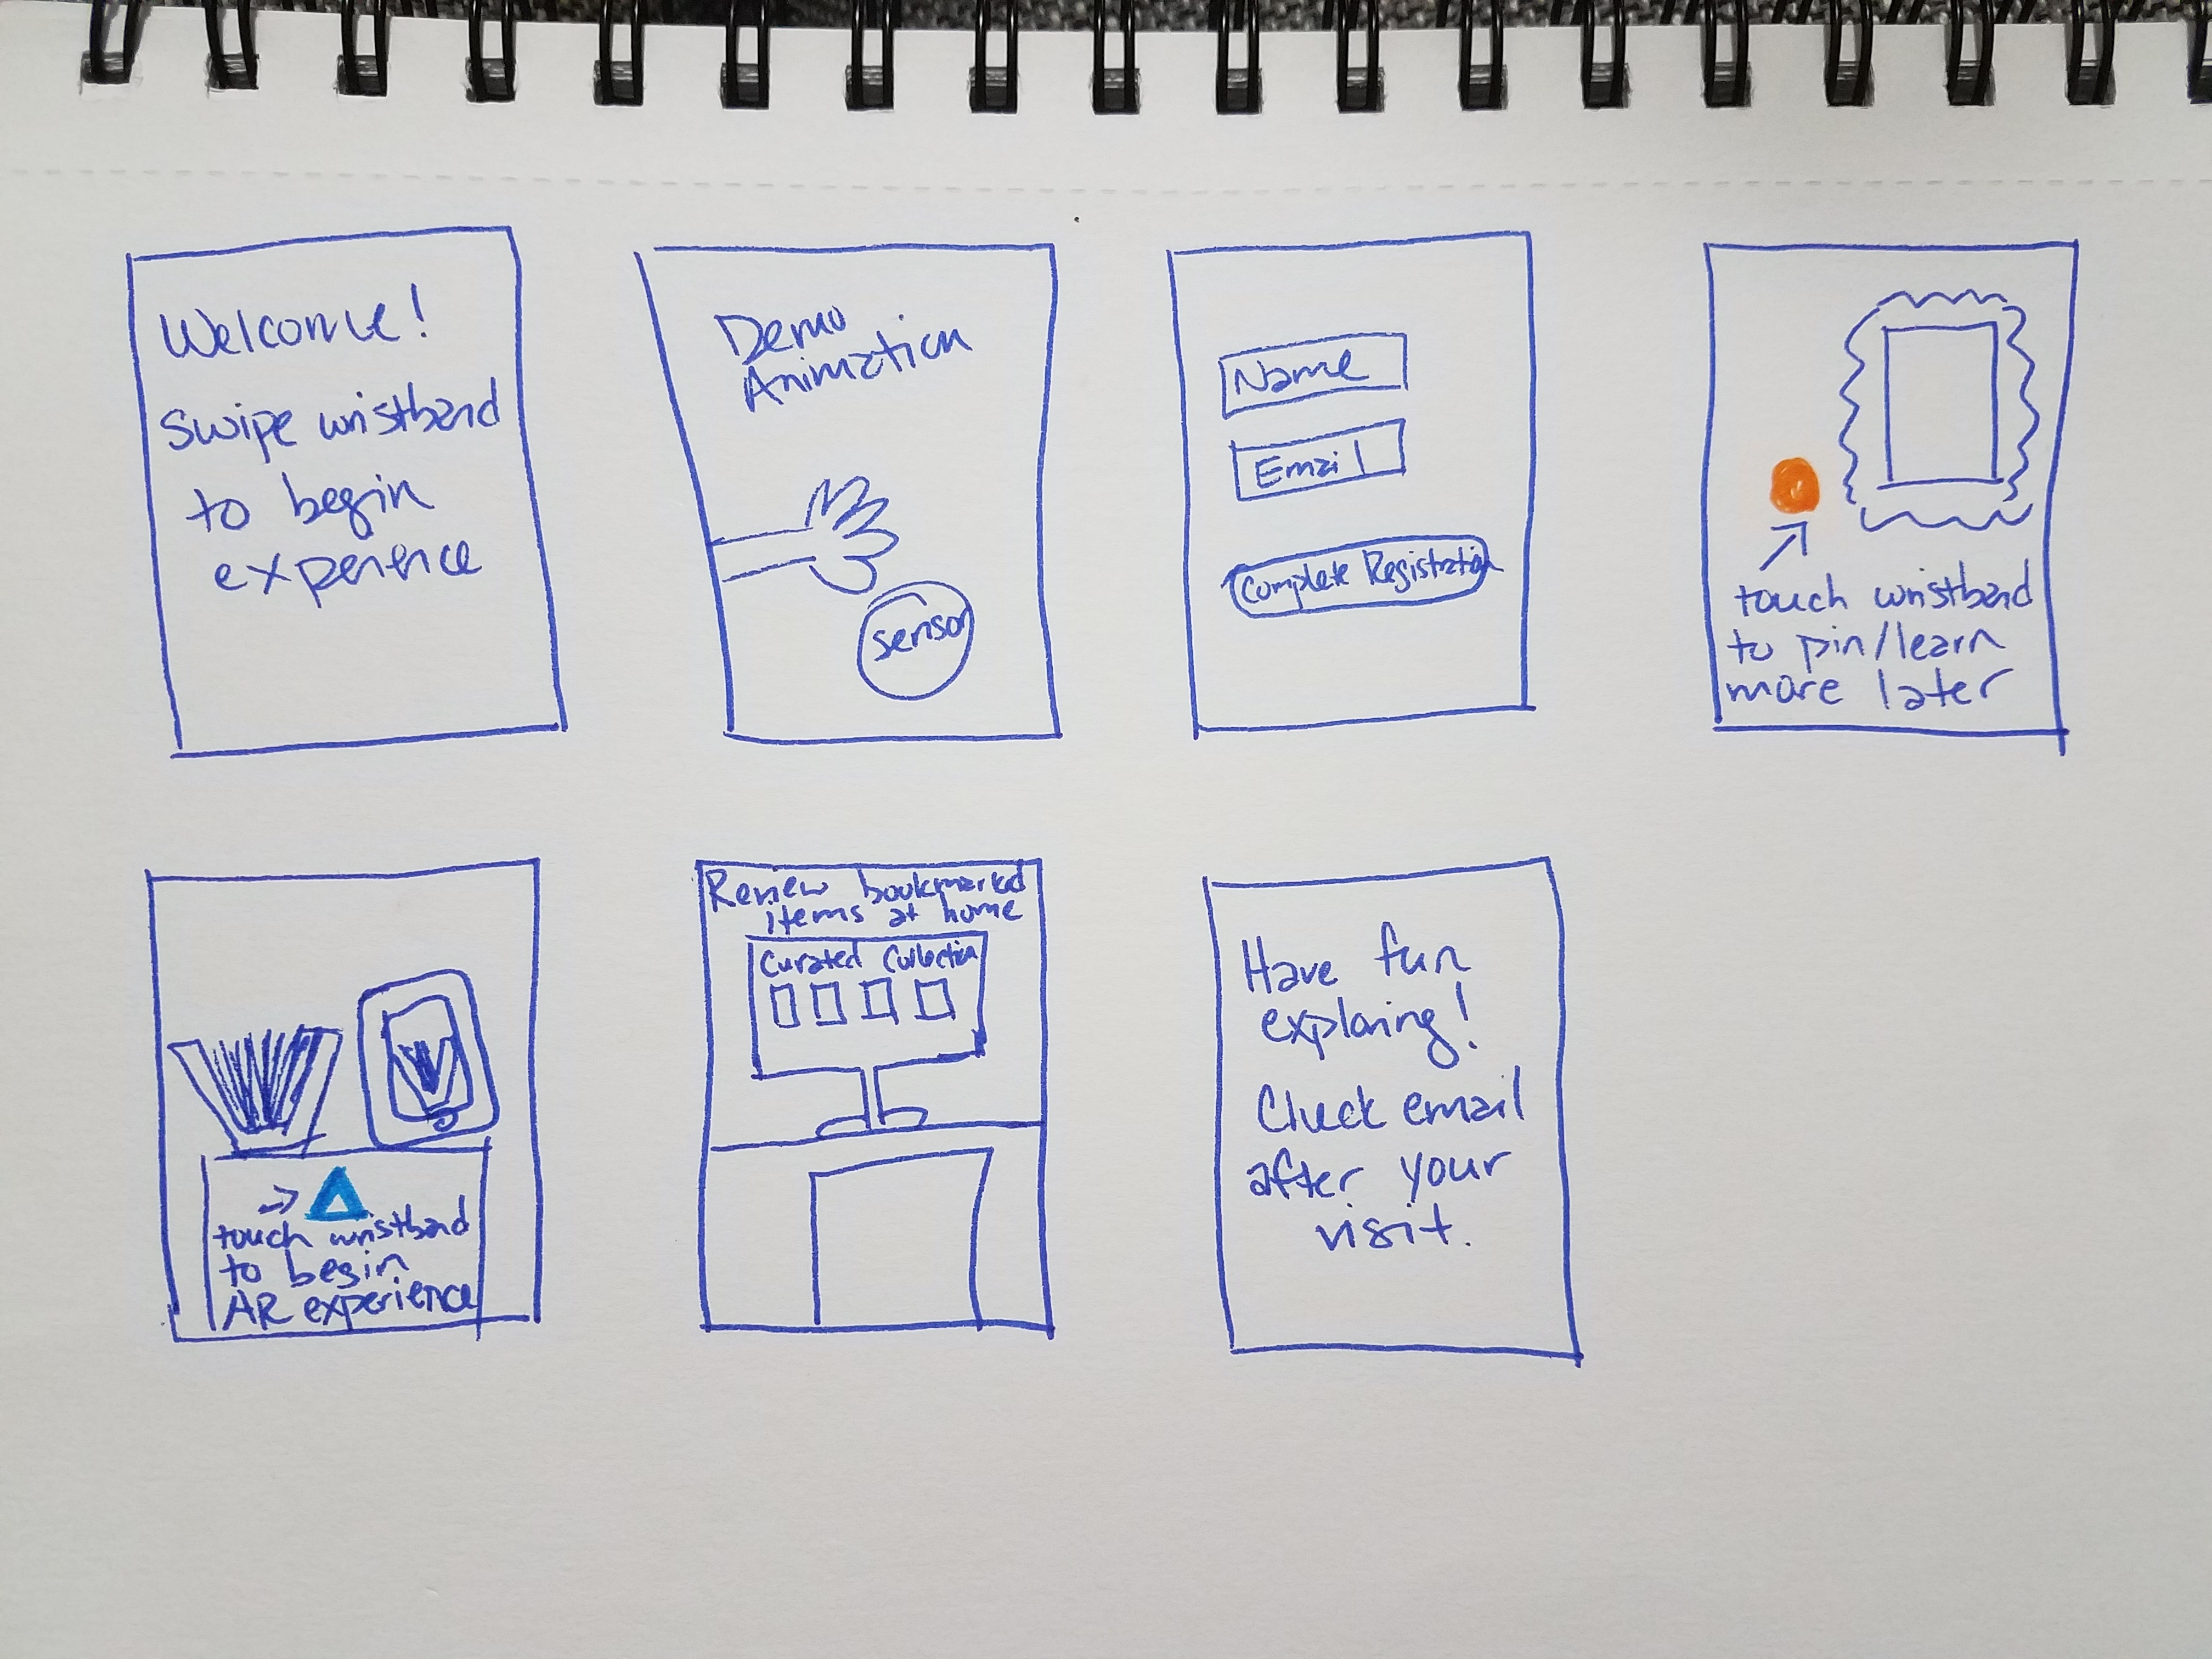 Welcome!
Swipe wristband
to begin
experience
Demo
Animation
sensor
Name
Email
Complete Registration
touch wristband
to pin/learn
more later
touch wristband
to begin
AR experience
Review bookmarked
items at home
Curated Collection
Have fun
exploring!
Check email
after your
visit.